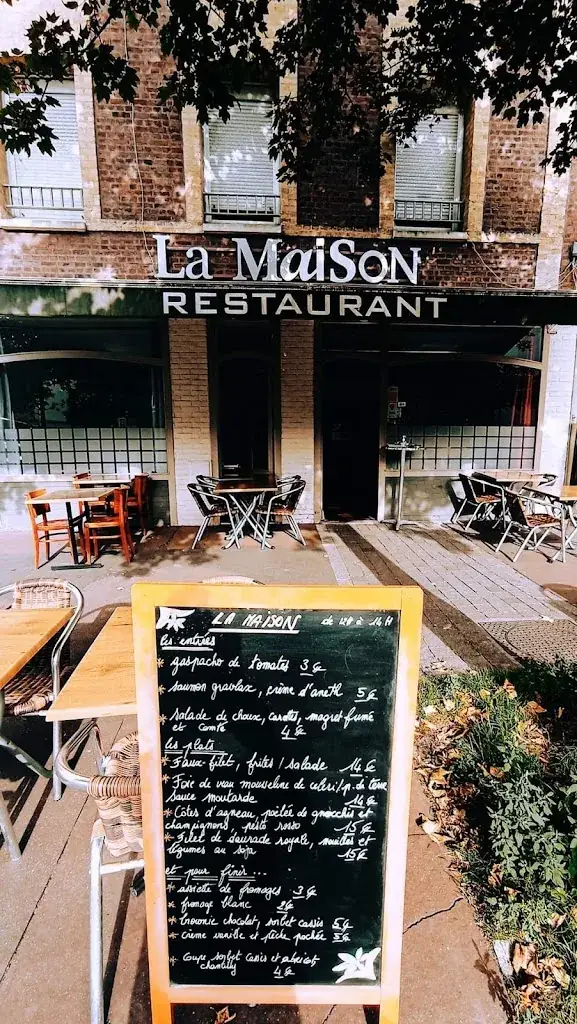 La MaiSoN
RESTAURANT
LA MAISON de 12H à 14H
les entrées
* gaspacho de tomates 3€
* saumon gravlax, crème d'aneth 5€
* salade de choux, carottes, magret fumé
et comté 4€
les plats
* Faux-filet, frites / salade 14€
* Foie de veau mousseline de céleri/p. de terre
sauce moutarde 14€
* Côtes d'agneau, poêlée de gnocchis et
champignons, pesto rosso 15€
* Filet de daurade royale, nouilles et
légumes au soja 15€
et pour finir ...
* assiette de fromages 3€
* fromage blanc 2€
* brownie chocolat, sorbet cassis 5€
* crème vanille et pêche pochée 5€
* coupe sorbet cassis et abricot
chantilly 4€